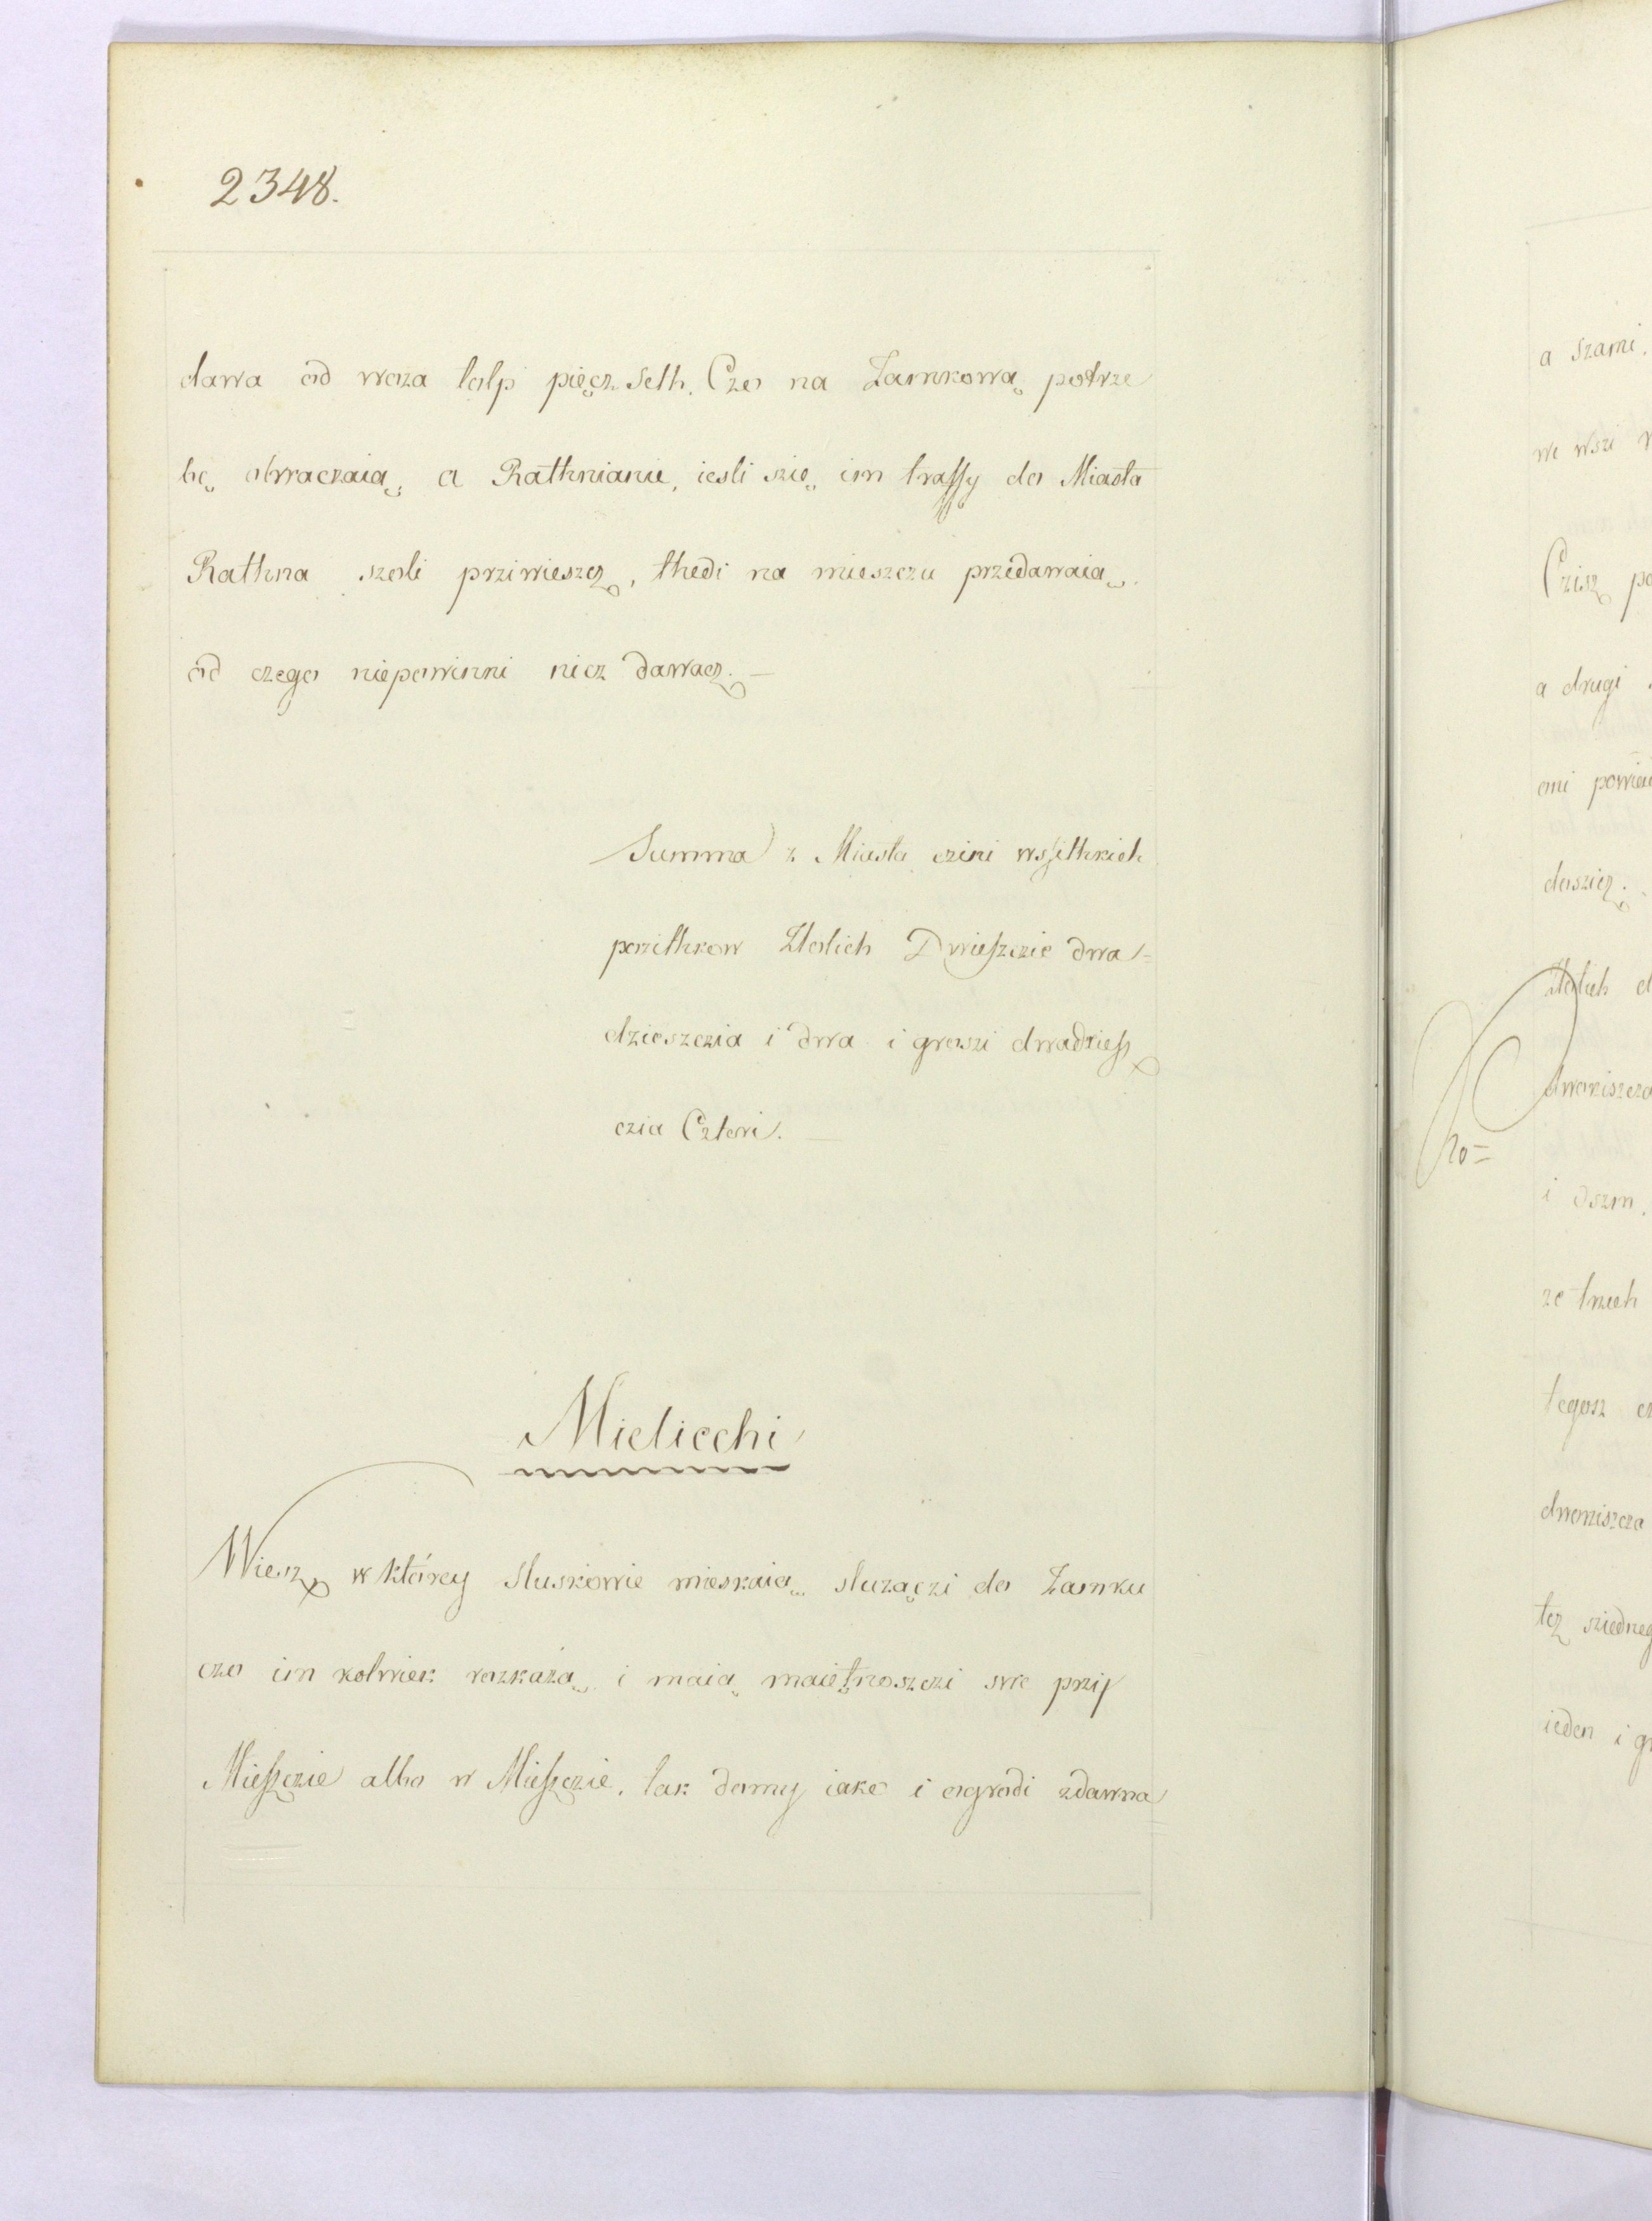 2348.
dawa od woza tolp pięcz seth. Czo na Zamkową potrze
bę obraczaią, a Rathnianie, iesli szię im traffy do Miasta
Rathna szoli prziwieszcz, thedi na mieszczu przedawaią.
od czego niepowinni nicz dawacz. —
Summa z Miasta czini wssithkich
pozithkow Złotich Dwieszczie dwa=
dzieszczia i dwa i groszi dwadziesz
czia Czteri. —
Mielicchi
Wiesz w którey Sluskowie mieskaią sluzączi do Zamku
czo im kolwiek rozkażą i maią maiętnoszczi swe przÿ
Mieszczie albo w Mieszczie, tak domy iako i ogrodi zdawna
a szami.
we wszi
Czisz
a drugi
oni
doszicz.
złotich
dworziszcza
ho=
i oszm.
ze trzech
tegosz
dworziszcza
tez
ieden i